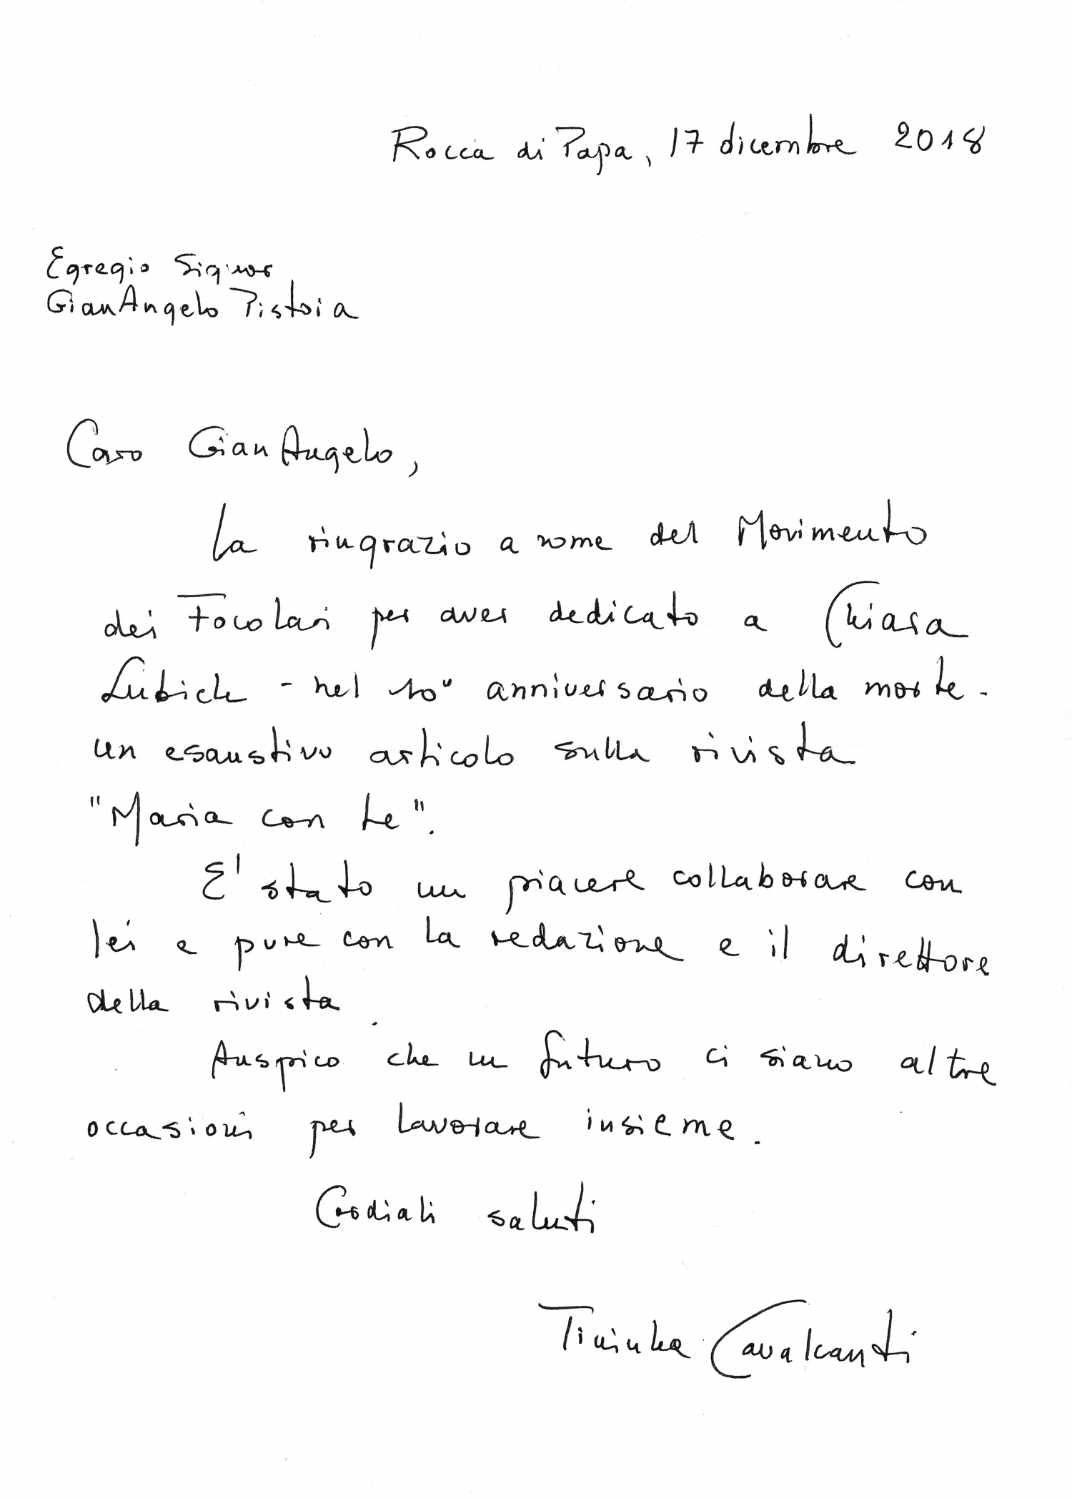 Rocca di Papa, 17 dicembre 2018
Egregio Signor
GianAngelo Pistoia
Caro GianAngelo,
La ringrazio a nome del Movimento
dei Focolari per aver dedicato a Chiara
Lubich - nel 10° anniversario della morte -
un esaustivo articolo sulla rivista
"Maria con te".
E' stato un piacere collaborare con
lei e pure con la redazione e il direttore
della rivista.
Auspico che in futuro ci siano altre
occasioni per lavorare insieme.
Cordiali saluti
Tininha Cavalcanti